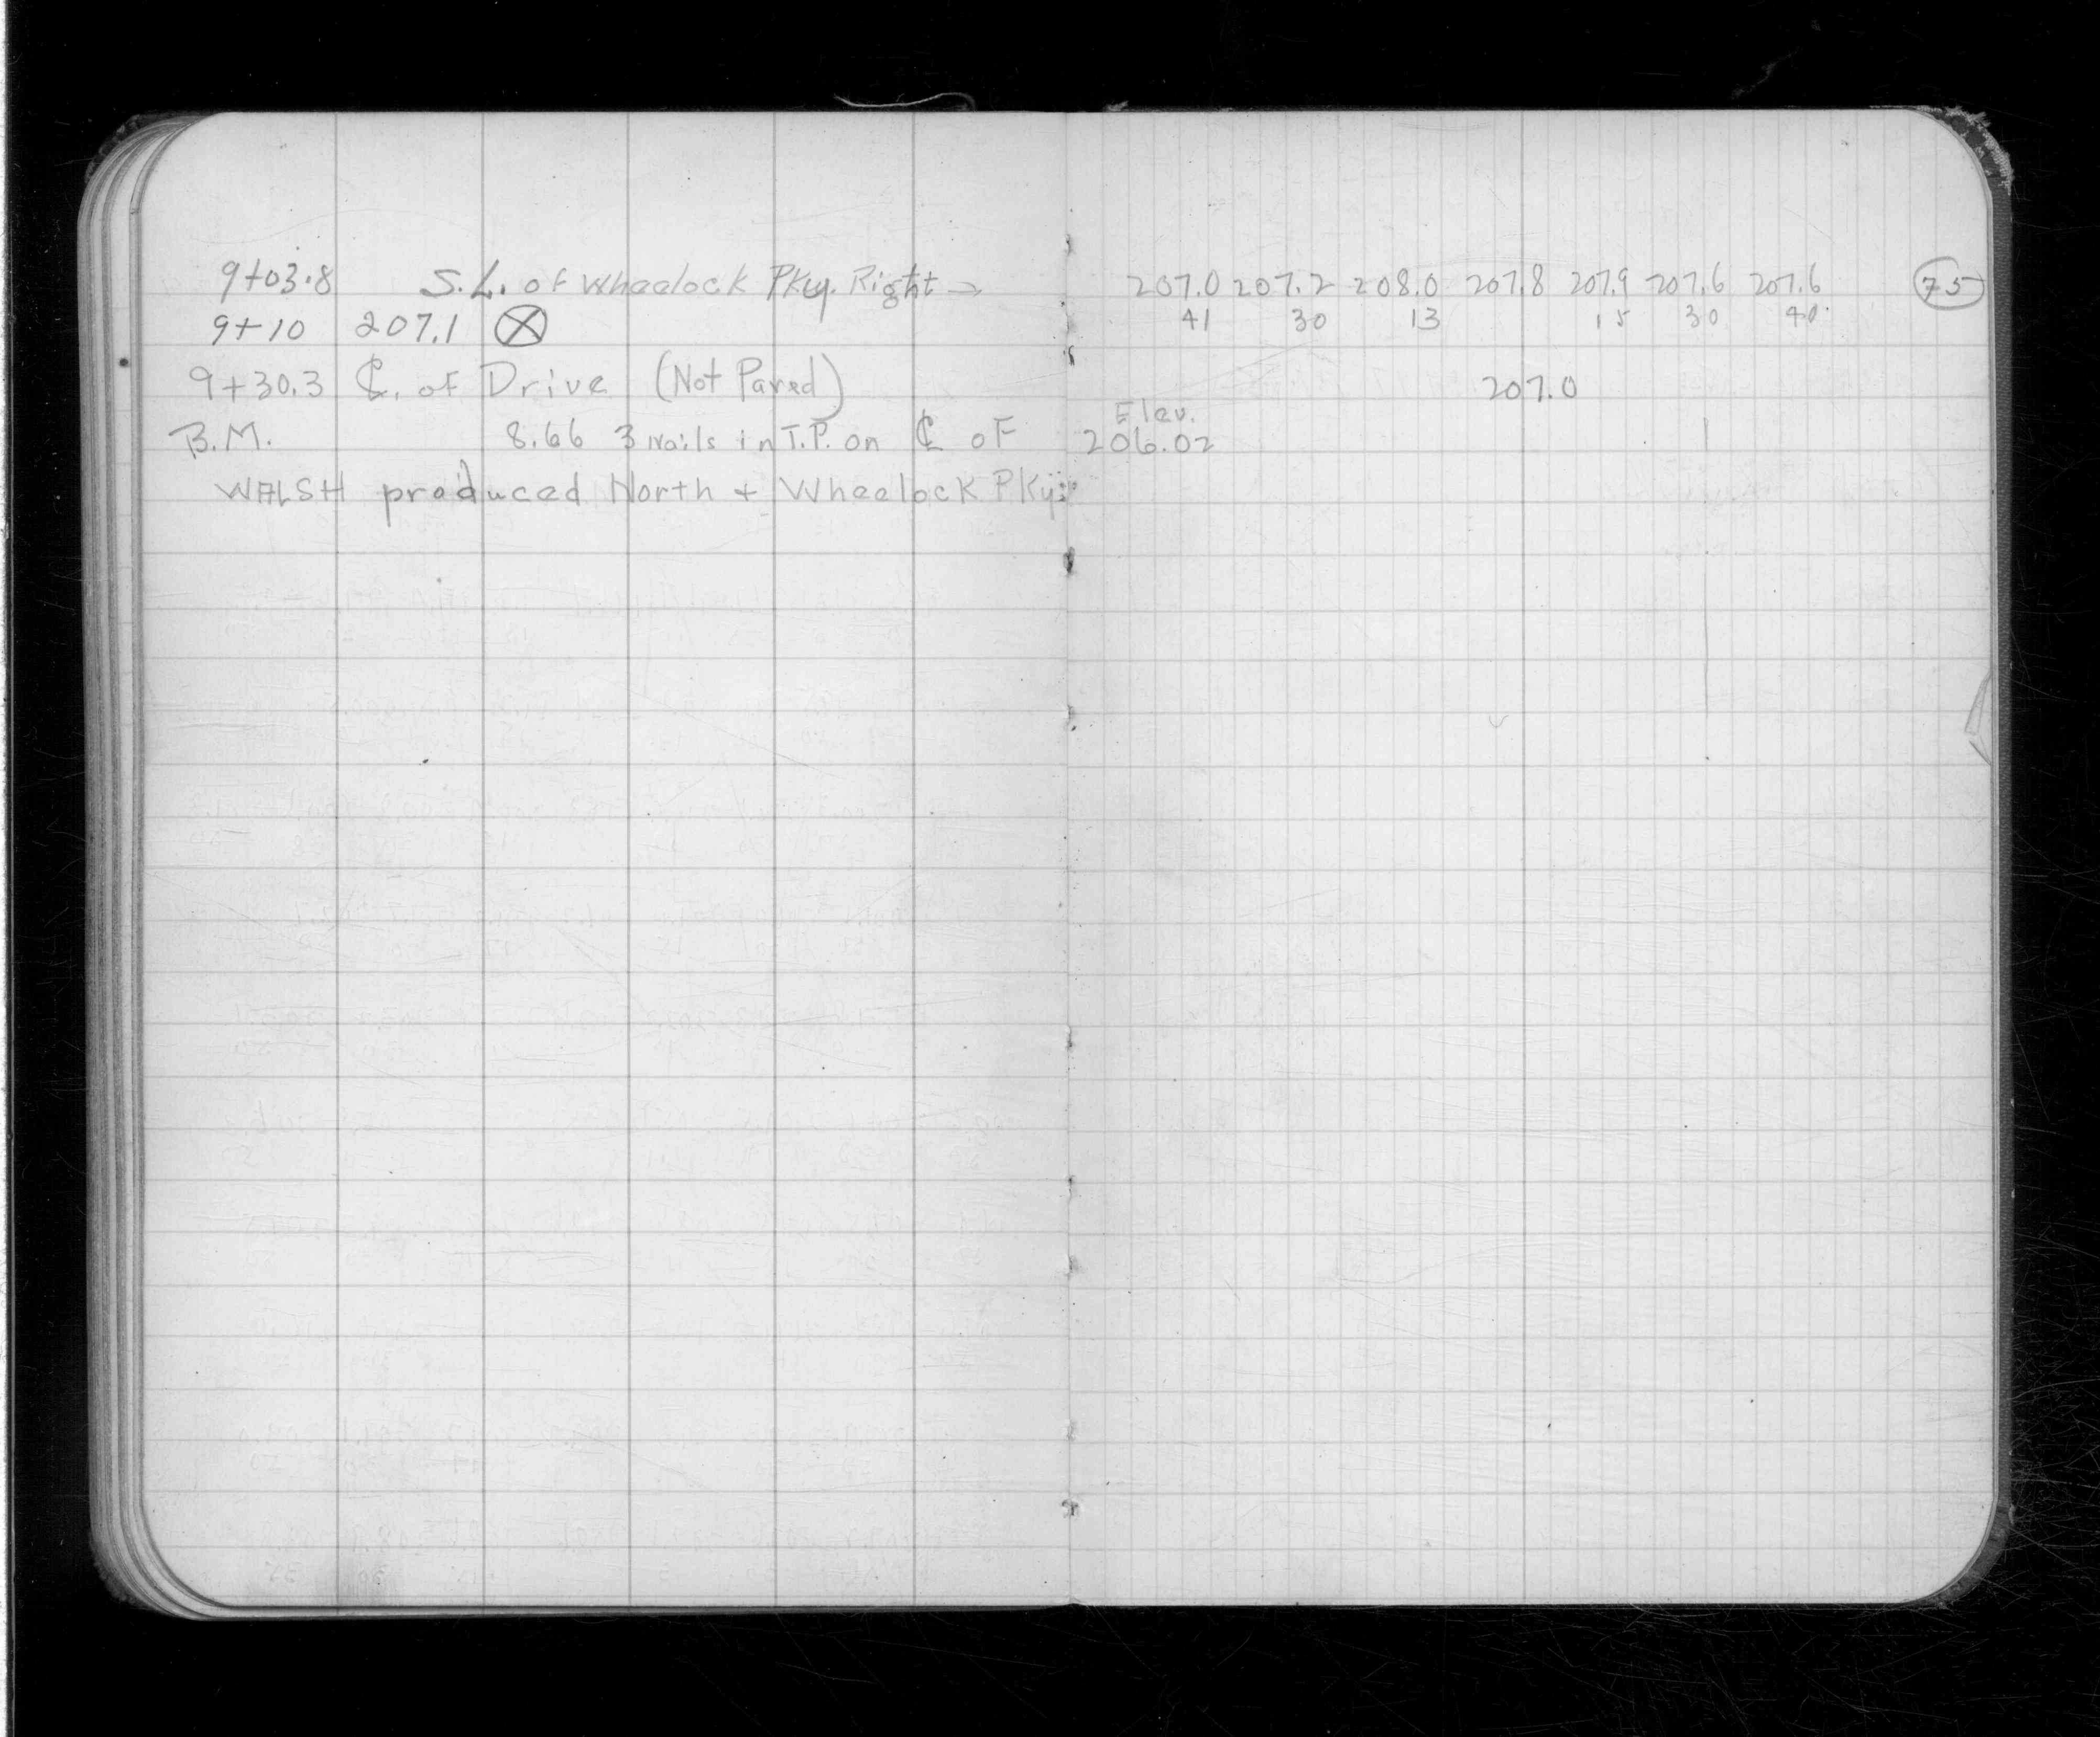 9+03.8 S.L. of Wheelock Pkwy. Right → 207.0 207.2 208.0 207.8 207.9 207.6 207.6 75
9+10 207.1 ⊗ 41 30 13 15 30 40
9+30.3 ℄. of Drive (Not Paved) 207.0
Elev.
B.M. 8.66 3 Nails in T.P. on ℄ of 206.02
WALSH produced North + Wheelock PKy.